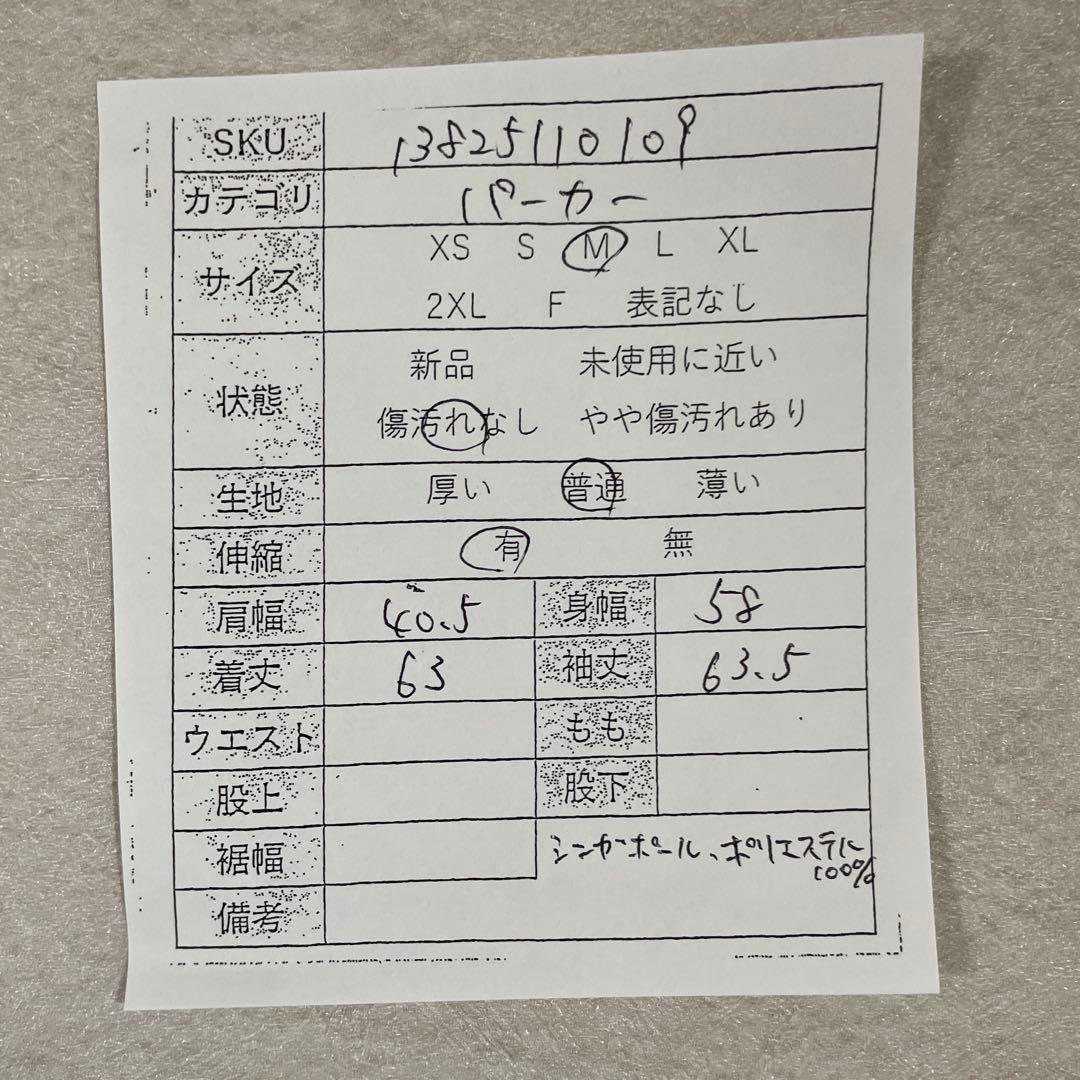 SKU 13825110109
カテゴリ パーカー
サイズ XS S M L XL
2XL F 表記なし
状態 新品 未使用に近い
傷汚れなし やや傷汚れあり
生地 厚い 普通 薄い
伸縮 有 無
肩幅 40.5 身幅 58
着丈 63 袖丈 63.5
ウエスト もも
股上 股下
裾幅 シンガポール、ポリエステル
100%
備考